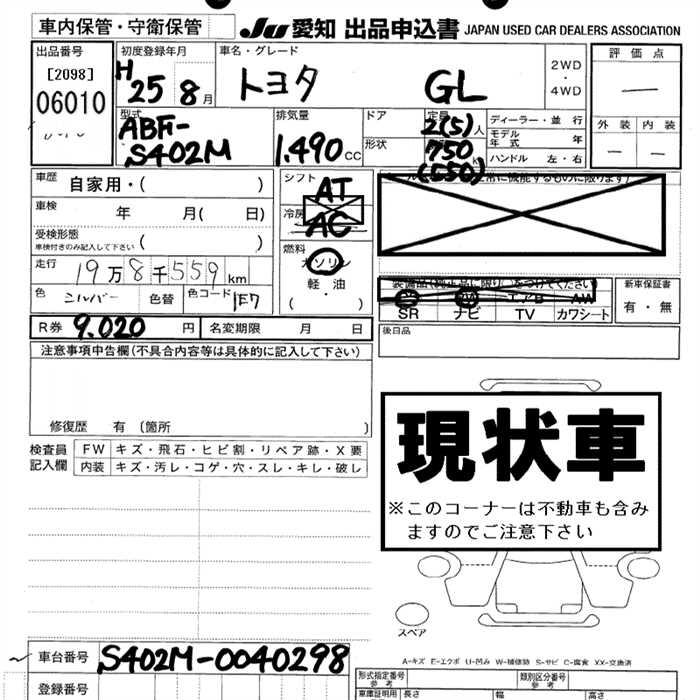 車内保管・守衛保管
JU 愛知 出品申込書 JAPAN USED CAR DEALERS ASSOCIATION
出品番号
[2098]
06010
初度登録年月
H 25 8月
車名・グレード
トヨタ GL
2WD
・
4WD
評価点
—
外装 内装
— —
型式
ABF-
S402M
排気量
1.490 CC
ドア
形状
定員
2(5)人
750
(550)
ディーラー・並行
モデル年式 年
ハンドル 左・右
車歴 自家用・( )
車検 年 月( 日)
受検形態
車検付きのみ記入して下さい ( )
走行 19万8千559km
色 シルバー 色替 色コード 1E7
シフト
AT
冷房
AC
燃料
ガソリン
軽・油
( ・ )
常に機能するものに限ります)
装備品(純正品に限り○をつけてください)
エアB AW
SR ナビ TV カワシート
新車保証書
有・無
後日品
R券 9.020円 名変期限 月 日
注意事項申告欄(不具合内容等は具体的に記入して下さい)
修復歴 有 〔箇所 〕
検査員
記入欄
FW キズ・飛石・ヒビ割・リペア跡・X要
内装 キズ・汚レ・コゲ・穴・スレ・キレ・破レ
現状車
※このコーナーは不動車も含み
ますのでご注意下さい
スペア
A-キズ E-エクボ U-凹み W-補修跡 S-サビ C-腐食 XX-交換済
車台番号 S402M-0040298
登録番号
形式指定番号
参考
類別区分番号
参考
車庫証明用
参考
長さ 幅 高さ